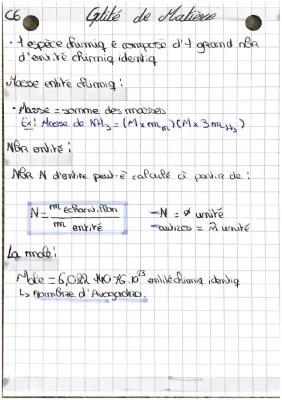 C6 Qtité de Matière
• 1 espèce chimiq é composé d'1 grand nbr
d'entité chimiq identiq
Masse entité chimiq :
• Masse = somme des masses
Ex: Masse de NH3 =
Nbr entité :
Nbr N d'entité peut-ê calculé à partir de :
N = m échantillon / m entité
- N = ø unité
- autres = m unité
La mole :
Mole = 6,022 140 76.10^23 entité chimiq identiq
↳ Nombre d'Avogadro.